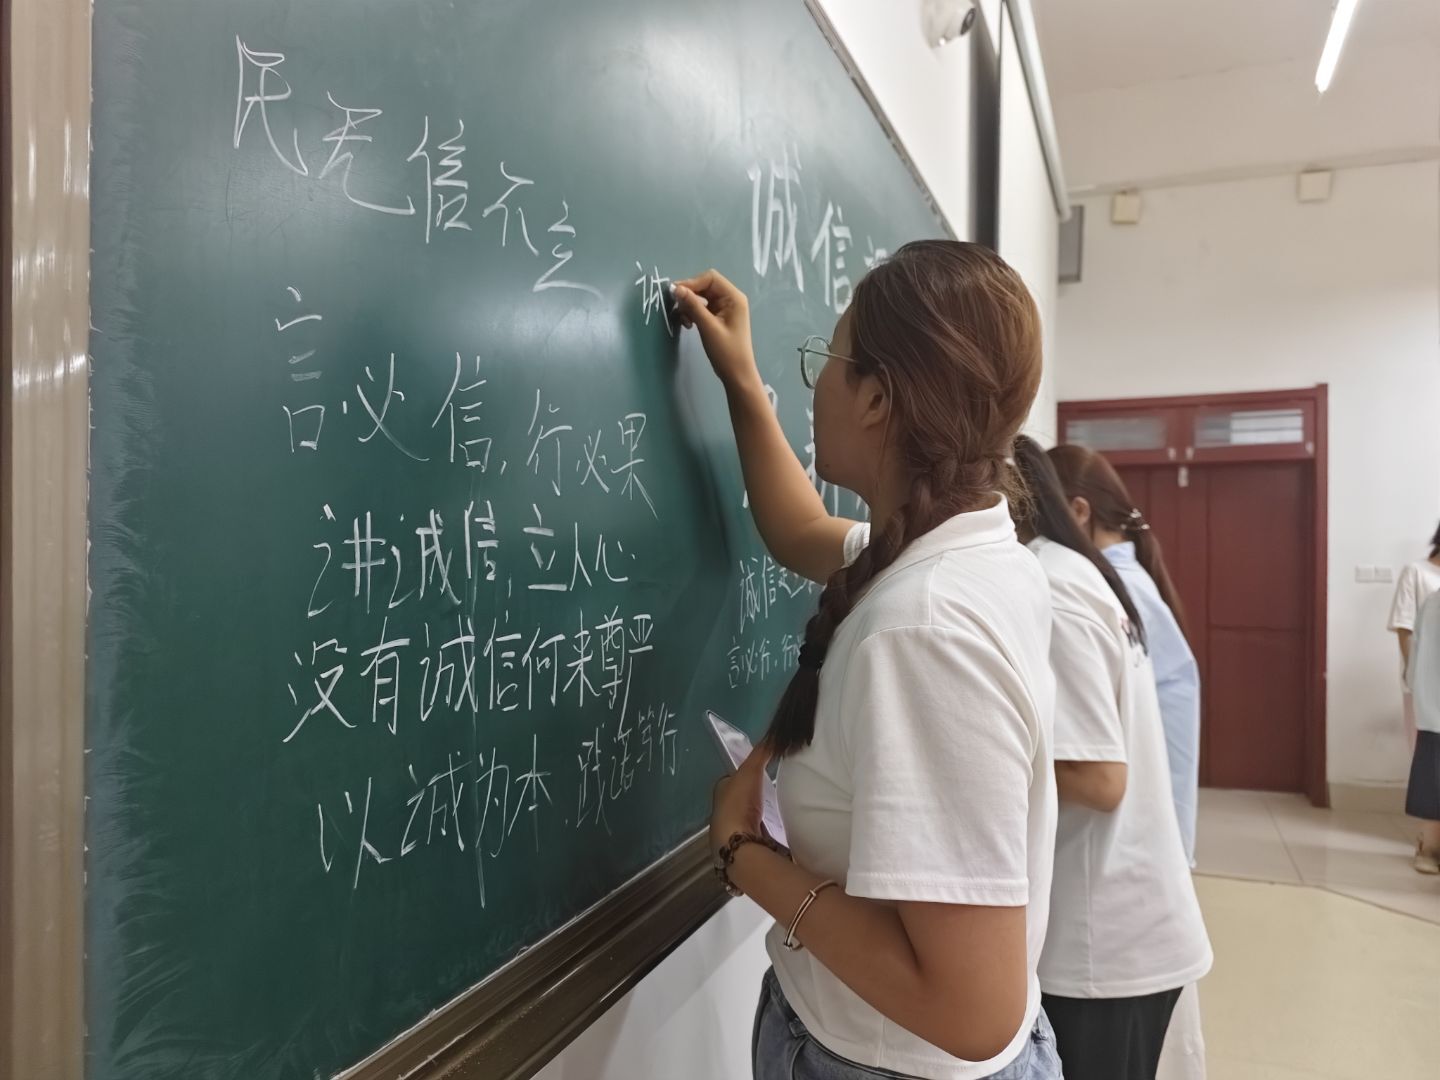 民无信不立
言必信,行必果
讲诚信,立人心.
没有诚信何来尊严
以诚为本.践诺笃行.
诚
诚信
诚信是
言必行,行